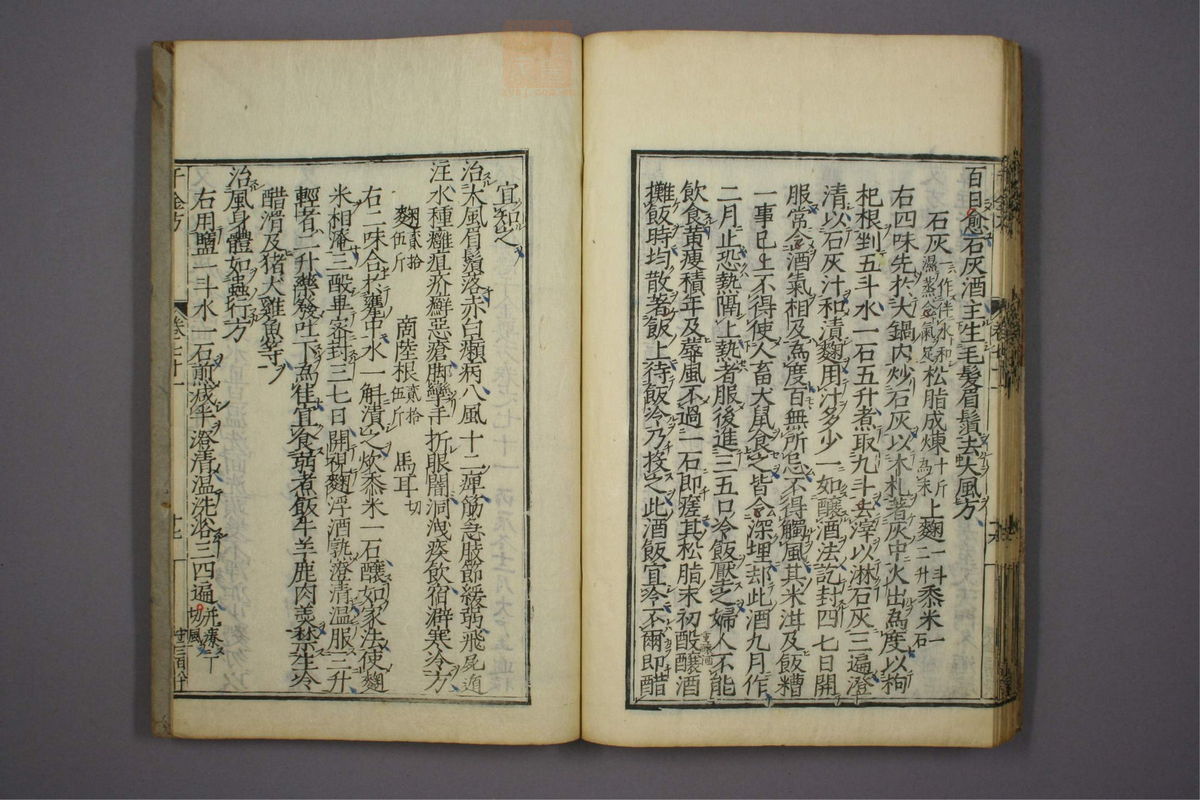 百日愈石灰酒主生毛髮眉鬚去大風方
石灰 一作伴水和濕蒸令氣足 松脂成煉十斤爲末 上麴一斗二升 黍米一石
右四味先於大鍋內炒石灰以木札著灰中火出爲度以枸
杞根剉五斗水一石五升煮取九斗去滓以淋石灰三遍澄
清以石灰汁和漬麴用汁多少一如釀酒法訖封四七日開
服常令酒氣相及爲度百無所忌不得觸風其米泔及飯糟
一事已上不得使人畜犬鼠食之皆令深埋却此酒九月作
二月止恐熱隔上熱者服後進三五口冷飯壓之婦人不能
飲食黃瘦積年及蓐風不過一石即瘥其松脂末初酘釀酒
攤飯時均散著飯上待飯冷乃投之此酒飯宜冷不爾即醋
宜知之
治大風眉鬚落赤白癩病八風十二痺筋急肢節緩弱飛尸遁
注水種癰疽疥癬惡瘡脚攣手折眼闇洞洩痰飲宿澼寒冷方
麴貳拾伍斤 商陸根貳拾伍斤 馬耳切
右二味合於甕中水一斛漬之炊黍米一石釀如家法使麴
米相淹三酘畢密封三七日開視麴浮酒熟澄清溫服三升
輕者二升藥發吐下爲佳宜食弱煮飯牛羊鹿肉羹禁生冷
醋滑及猪犬雞魚等
治風身體如蟲行方
右用鹽一斗水一石煎減半澄清溫洗浴三四遍 并療一切風
千金方
卷七十一